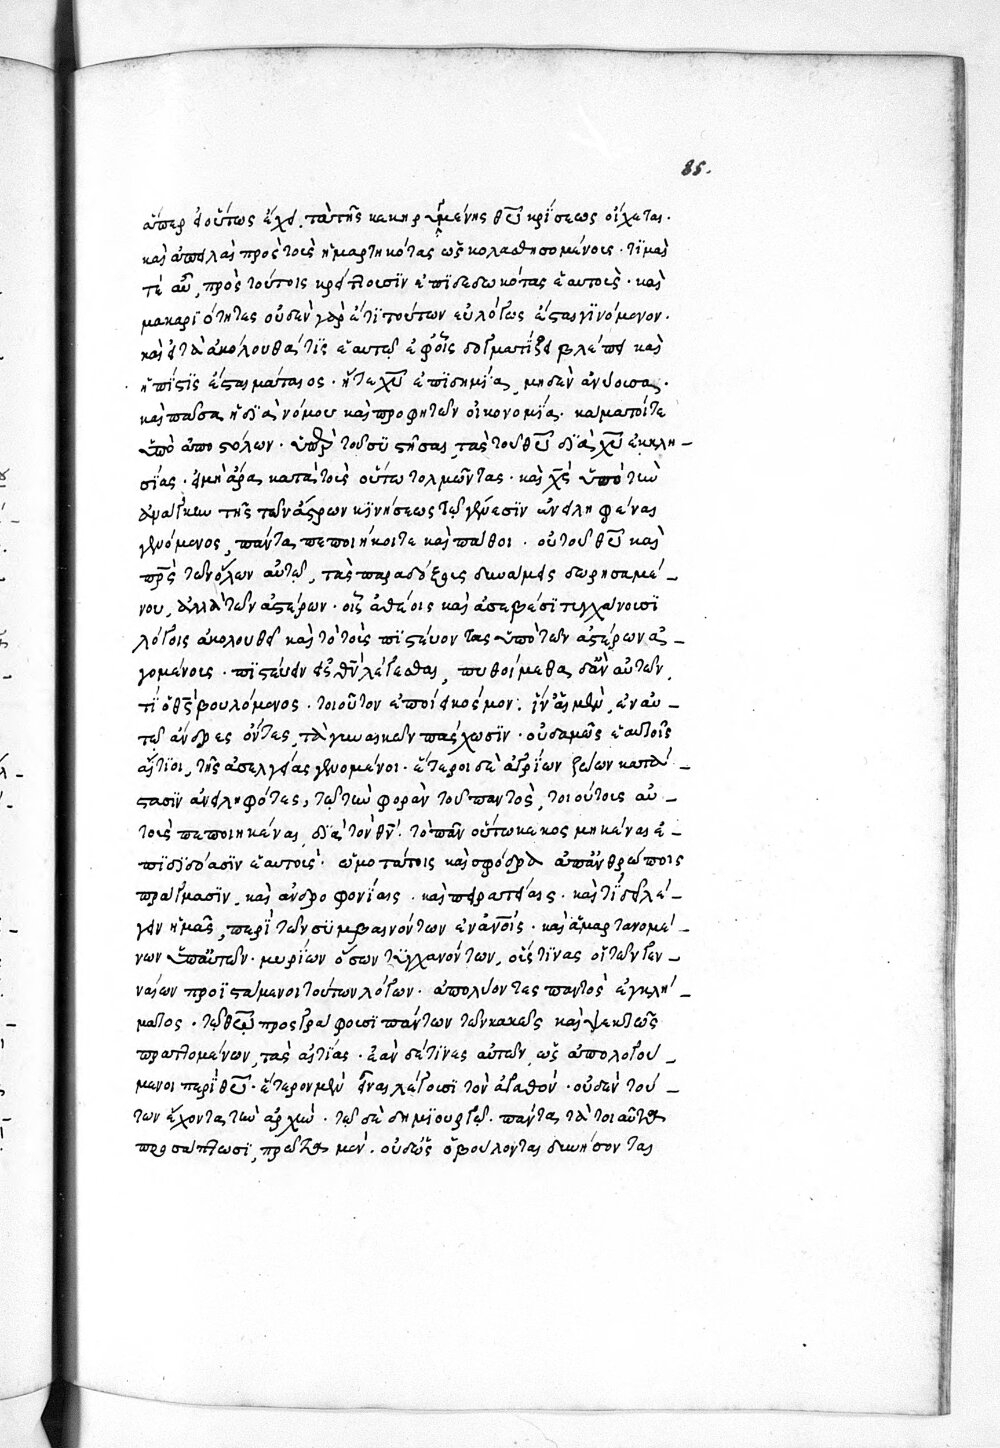 85.
ἅπερ εἰ οὕτως ἔχει, τὰ τῆς κεκηρυγμένης θυ κρίσεως οἴχεται.
καὶ ἀπειλαὶ πρὸς τοὺς ἡμαρτηκότας ὡς κολασθησομένους. τιμαὶ
τε αὖ, πρὸς τοὺς τοῖς κρείττοσιν ἐπιδεδωκότας ἑαυτοὺς. καὶ
μακαριότητες οὐδὲν γὰρ ἔτι τούτων εὐλόγως ἔσται γινόμενον.
καὶ εἰ τὰ ἀκόλουθά τις ἑαυτῷ ἐφ' οἷς δογματίζει βλέποι καὶ
ἡ πίστις ἔσται μάταιος. ἥ τε χυ ἐπιδημία, μηδὲν ἀνύουσα.
καὶ πᾶσα ἡ διὰ νόμου καὶ προφητῶν οἰκονομία. κάματοί τε
ὑπὸ ἀποστόλων. ὑπὲρ τοῦ συστῆσαι, τὰς τοῦ θυ διὰ χυ ἐκκλη-
σίας. εἰ μὴ ἄρα κατὰ τοὺς οὕτω τολμῶντας. καὶ χς ὑπὸ τὴν
ἀνάγκην τῆς τῶν ἄστρων κινήσεως τῷ γένεσιν ἀνειληφέναι
γενόμενος, πάντα πεποιήκοι τε καὶ πάθοι. οὐ τοῦ θυ καὶ
πρς τῶν ὅλων αὐτῷ, τὰς παραδόξους δυνάμεις δωρησαμέ-
νου, ἀλλὰ τῶν ἀστέρων. οἷς ἀθέοις καὶ ἀσεβέσι τυγχάνουσι
λόγοις ἀκολουθεῖ καὶ τὸ τοὺς πιστεύοντας ὑπὸ τῶν ἀστέρων ἀ-
γομένους. πιστεύειν εἰς θν λέγεσθαι, πυθοίμεθα δ' ἂν αὐτῶν,
τί ὁ θς βουλόμενος. τοιοῦτον ἐποίει κόσμον. ἵν' οἱ μὲν, ἐν αὐ-
τῷ ἄνδρες ὄντες, τὰ γυναικῶν πάσχωσιν. οὐδαμῶς ἑαυτοῖς
αἴτιοι, τῆς ἀσελγείας γενόμενοι. ἕτεροι δὲ ἀγρίων ζώων κατά-
στασιν ἀνειληφότες, τῷ τὴν φορὰν τοῦ παντὸς, τοιούτους αὐ-
τοὺς πεποιηκέναι, διὰ τὸν θν. τὸ πᾶν οὕτω κεκοσμηκέναι ἐ-
πιδιδόασιν ἑαυτοὺς. ὠμοτάτοις καὶ σφόδρα ἀπανθρώποις
πράγμασιν. καὶ ἀνδροφονίαις. καὶ πειρατείαις. καὶ τί δεῖ λέ-
γειν ἡμᾶς, περὶ τῶν συμβαινόντων ἐν ἀνοις. καὶ ἁμαρτανομέ-
νων ὑπ' αὐτῶν. μυρίων ὅσων τυγχανόντων, οὕς τινας οἱ τῶν γεν-
ναίων προϊστάμενοι τούτων λόγων. ἀπολύοντες παντὸς ἐγκλή-
ματος. τῷ θω προσγράφουσι πάντων τῶν κακῶς καὶ ψεκτῶς
πραττομένων, τὰς αἰτίας. ἐὰν δέ τινες αὐτῶν, ὡς ἀπολογού-
μενοι περὶ θυ. ἕτερον μὲν εἶναι λέγουσι τὸν ἀγαθὸν. οὐδενὸς τού-
των ἔχοντα τὴν ἀρχὴν. τῷ δὲ δημιουργῷ. πάντα τὰ τοιαῦτα
προσάπτωσι, πρῶτον μὲν. οὐδ' ὣς ὃ βούλονται δυνήσονται